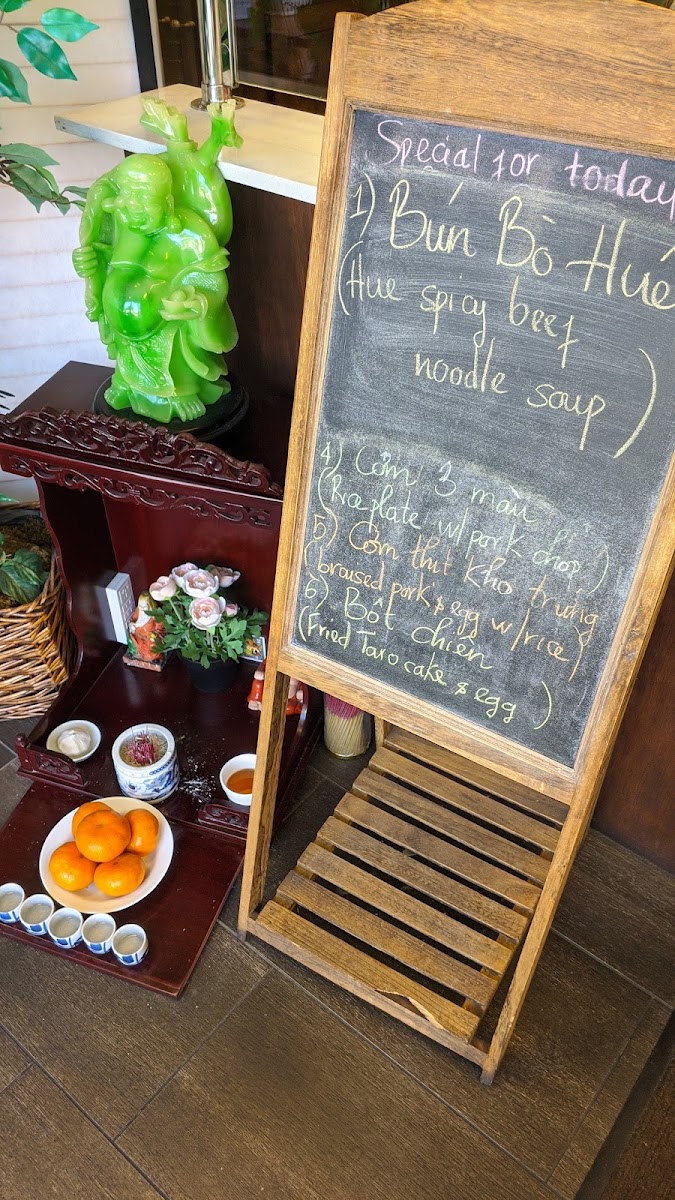 Special for today
1) Bún Bò Hué
(Hue spicy beef
noodle soup)
4) Cơm 3 màu
(Rice plate w/pork chop)
5) Cơm thit kho trứng
(braused pork & egg w/rice)
6) Bôt chiên
(Fried Taro cake & egg)